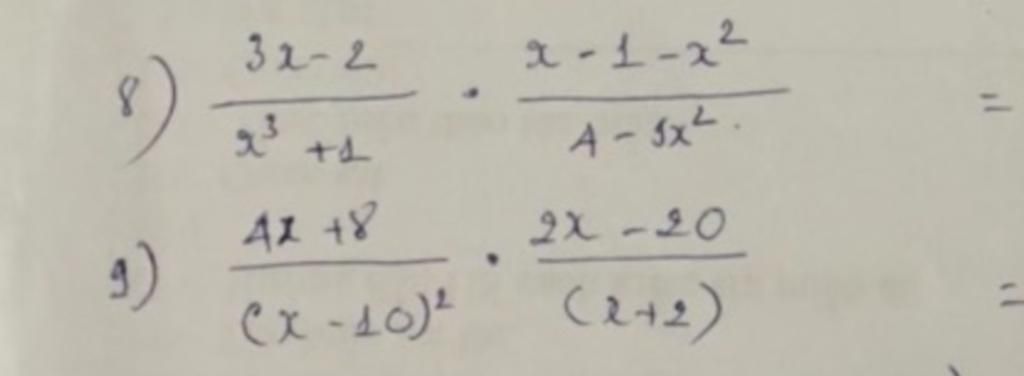 8) \frac{3x-2}{x^3+1} \cdot \frac{x-1-x^2}{4-9x^2} =
9) \frac{4x+8}{(x-10)^2} \cdot \frac{2x-20}{(x+2)} =